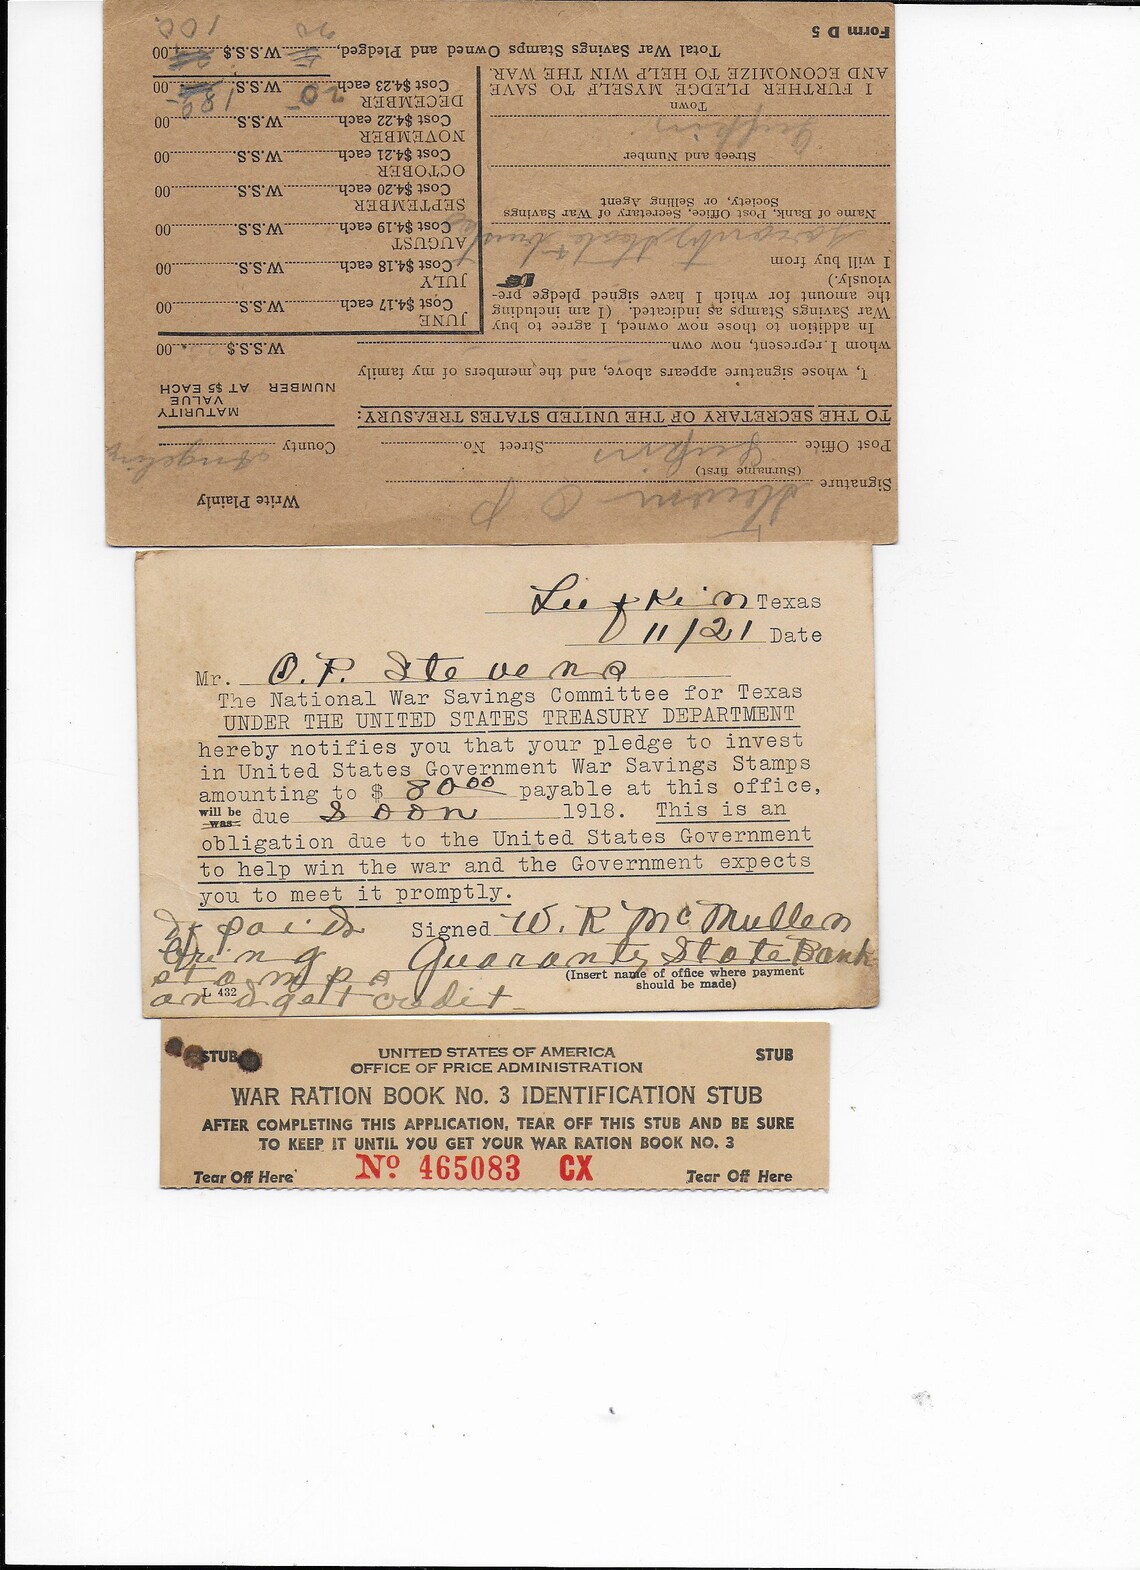 Write Plainly
Signature Stevens O P
(Surname first)
Post Office Lufkin Street No. County Angelina
TO THE SECRETARY OF THE UNITED STATES TREASURY:
NUMBER MATURITY VALUE AT $5 EACH
I, whose signature appears above, and the members of my family
whom I represent, now own W.S.S.$ .00
In addition to those now owned, I agree to buy
War Savings Stamps as indicated. (I am including
the amount for which I have signed pledge pre-
viously.)
I will buy from
Guaranty State
Name of Bank, Post Office, Secretary of War Savings
Society, or Selling Agent
Street and Number
Lufkin
Town
I FURTHER PLEDGE MYSELF TO SAVE
AND ECONOMIZE TO HELP WIN THE WAR.
JUNE
Cost $4.17 each W.S.S. .00
JULY
Cost $4.18 each W.S.S. .00
AUGUST
Cost $4.19 each W.S.S. .00
SEPTEMBER
Cost $4.20 each W.S.S. .00
OCTOBER
Cost $4.21 each W.S.S. .00
NOVEMBER
Cost $4.22 each W.S.S. .00
DECEMBER
Cost $4.23 each 20 W.S.S. .00
Total War Savings Stamps Owned and Pledged, W.S.S.$ .00
20 100
Form D 5
Lufkin Texas
11/21 Date
Mr. O.P. Stevens
The National War Savings Committee for Texas
UNDER THE UNITED STATES TREASURY DEPARTMENT
hereby notifies you that your pledge to invest
in United States Government War Savings Stamps
amounting to $ 80.00 payable at this office,
will be
was due soon 1918. This is an
obligation due to the United States Government
to help win the war and the Government expects
you to meet it promptly.
Signed W. R McMullen
Guaranty State Bank
(Insert name of office where payment
should be made)
If paid
bring
stamps
and get credit
L 432
STUB UNITED STATES OF AMERICA STUB
OFFICE OF PRICE ADMINISTRATION
WAR RATION BOOK No. 3 IDENTIFICATION STUB
AFTER COMPLETING THIS APPLICATION, TEAR OFF THIS STUB AND BE SURE
TO KEEP IT UNTIL YOU GET YOUR WAR RATION BOOK NO. 3
Tear Off Here No 465083 CX Tear Off Here